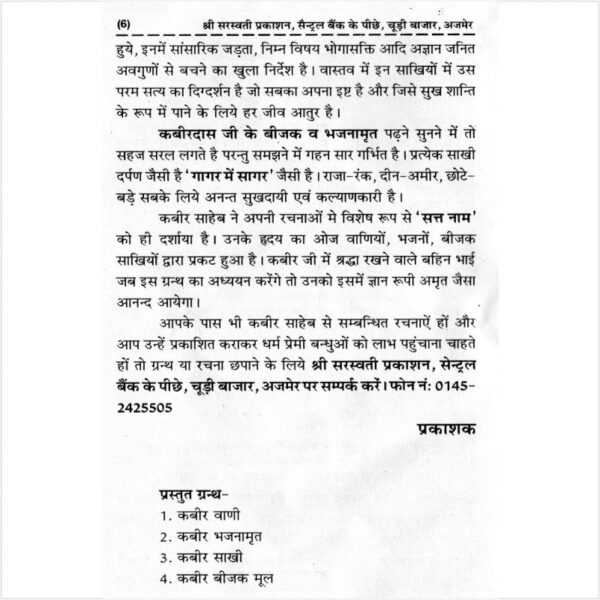 (6) श्री सरस्वती प्रकाशन, सैन्ट्रल बैंक के पीछे, चूड़ी बाजार, अजमेर
हुये, इनमें सांसारिक जड़ता, निम्न विषय भोगासक्ति आदि अज्ञान जनित
अवगुणों से बचने का खुला निर्देश है। वास्तव में इन साखियों में उस
परम सत्य का दिग्दर्शन है जो सबका अपना इष्ट है और जिसे सुख शान्ति
के रूप में पाने के लिये हर जीव आतुर है।
कबीरदास जी के बीजक व भजनामृत पढ़ने सुनने में तो
सहज सरल लगते है परन्तु समझने में गहन सार गर्भित है। प्रत्येक साखी
दर्पण जैसी है 'गागर में सागर' जैसी है। राजा-रंक, दीन-अमीर, छोटे-
बड़े सबके लिये अनन्त सुखदायी एवं कल्याणकारी है।
कबीर साहेब ने अपनी रचनाओं मे विशेष रूप से 'सत्त नाम'
को ही दर्शाया है। उनके हृदय का ओज वाणियों, भजनों, बीजक
साखियों द्वारा प्रकट हुआ है। कबीर जी में श्रद्धा रखने वाले बहिन भाई
जब इस ग्रन्थ का अध्ययन करेंगे तो उनको इसमें ज्ञान रूपी अमृत जैसा
आनन्द आयेगा।
आपके पास भी कबीर साहेब से सम्बन्धित रचनाऐं हों और
आप उन्हें प्रकाशित कराकर धर्म प्रेमी बन्धुओं को लाभ पहुंचाना चाहते
हों तो ग्रन्थ या रचना छपाने के लिये श्री सरस्वती प्रकाशन, सेन्ट्रल
बैंक के पीछे, चूड़ी बाजार, अजमेर पर सम्पर्क करें। फोन नं: 0145-
2425505
प्रकाशक
प्रस्तुत ग्रन्थ-
1. कबीर वाणी
2. कबीर भजनामृत
3. कबीर साखी
4. कबीर बीजक मूल